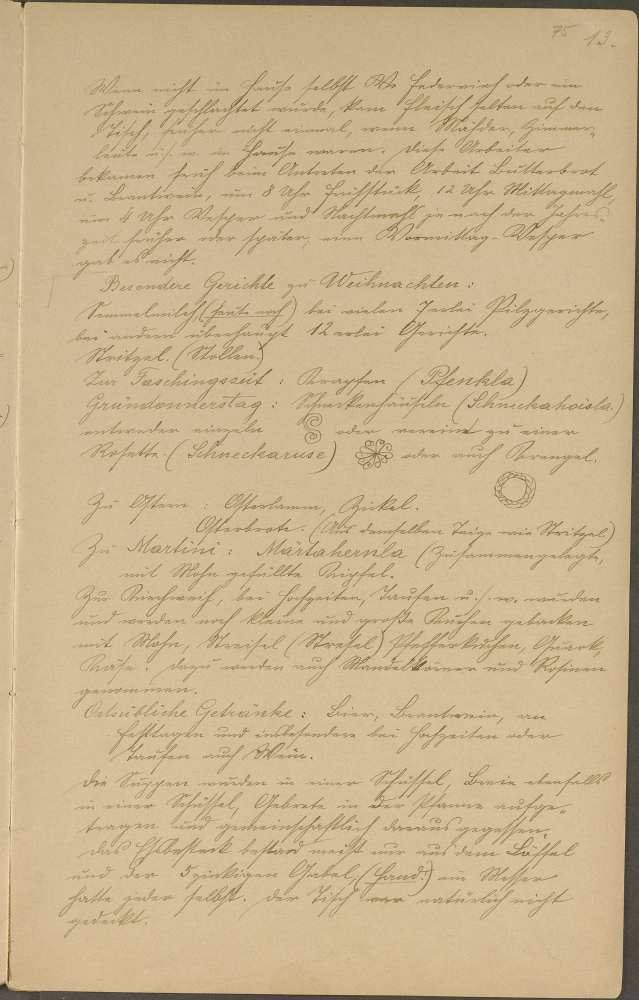 75 13.
Wenn nicht im Hause selbst Federvieh oder ein
Schwein geschlachtet wurde, kam Fleisch selten auf den
Tisch, früher nicht einmal, wenn Mähder, Zimmer-
leute u. s. w. im Hause waren. Diese Arbeiter
bekamen früh beim Antreten der Arbeit Butterbrot
u. Brantwein, um 8 Uhr Frühstück, 12 Uhr Mittagmahl,
um 4 Uhr Vesper und Nachtmahl je nach der Jahres-
zeit früher oder später; eine Vormittag-Vesper
gab es nicht.
Besondere Gerichte zu Weihnachten:
Semmelmilch, (heute noch) bei vielen 7erlei Pilzgerichte,
bei andern überhaupt 12erlei Gerichte.
Stritzel. (Stollen)
Zur Faschingszeit: Krapfen (Pfenkla)
Gründonnerstag: Schneckenhäuseln (Schneckahoisla.)
entweder einzeln oder vereint zu einer
Rosette. (Schneckaruse) oder auch Brengel.
Zu Ostern: Osterlamm, Zickel.
Osterbrote. (Aus demselben Teige wie Stritzel)
Zu Martini: Märtahernla (Zusammengelegte,
mit Mohn gefüllte Kipfel.
Zur Kirchweih, bei Hochzeiten, Taufen u. s. w. wurden
und werden noch kleine und große Kuchen gebacken
mit Mohn, Streisel (Stresel) Pfefferkuchen, Quark,
Käse. Dazu werden auch Mandelkörner und Rosinen
genommen.
Ortsübliche Getränke: Bier, Brantwein, an
Festtagen und insbesondere bei Hochzeiten oder
Taufen auch Wein.
Die Suppen wurden in einer Schüssel, Breie ebenfalls
in einer Schüssel, Gebrote in der Pfanne aufge-
tragen und gemeinschaftlich daraus gegessen.
Das Eßbesteck bestand meist nur aus dem Löffel
und der 5zinkigen Gabel, (Hand!) ein Messer
hatte jeder selbst. Der Tisch war natürlich nicht
gedeckt.